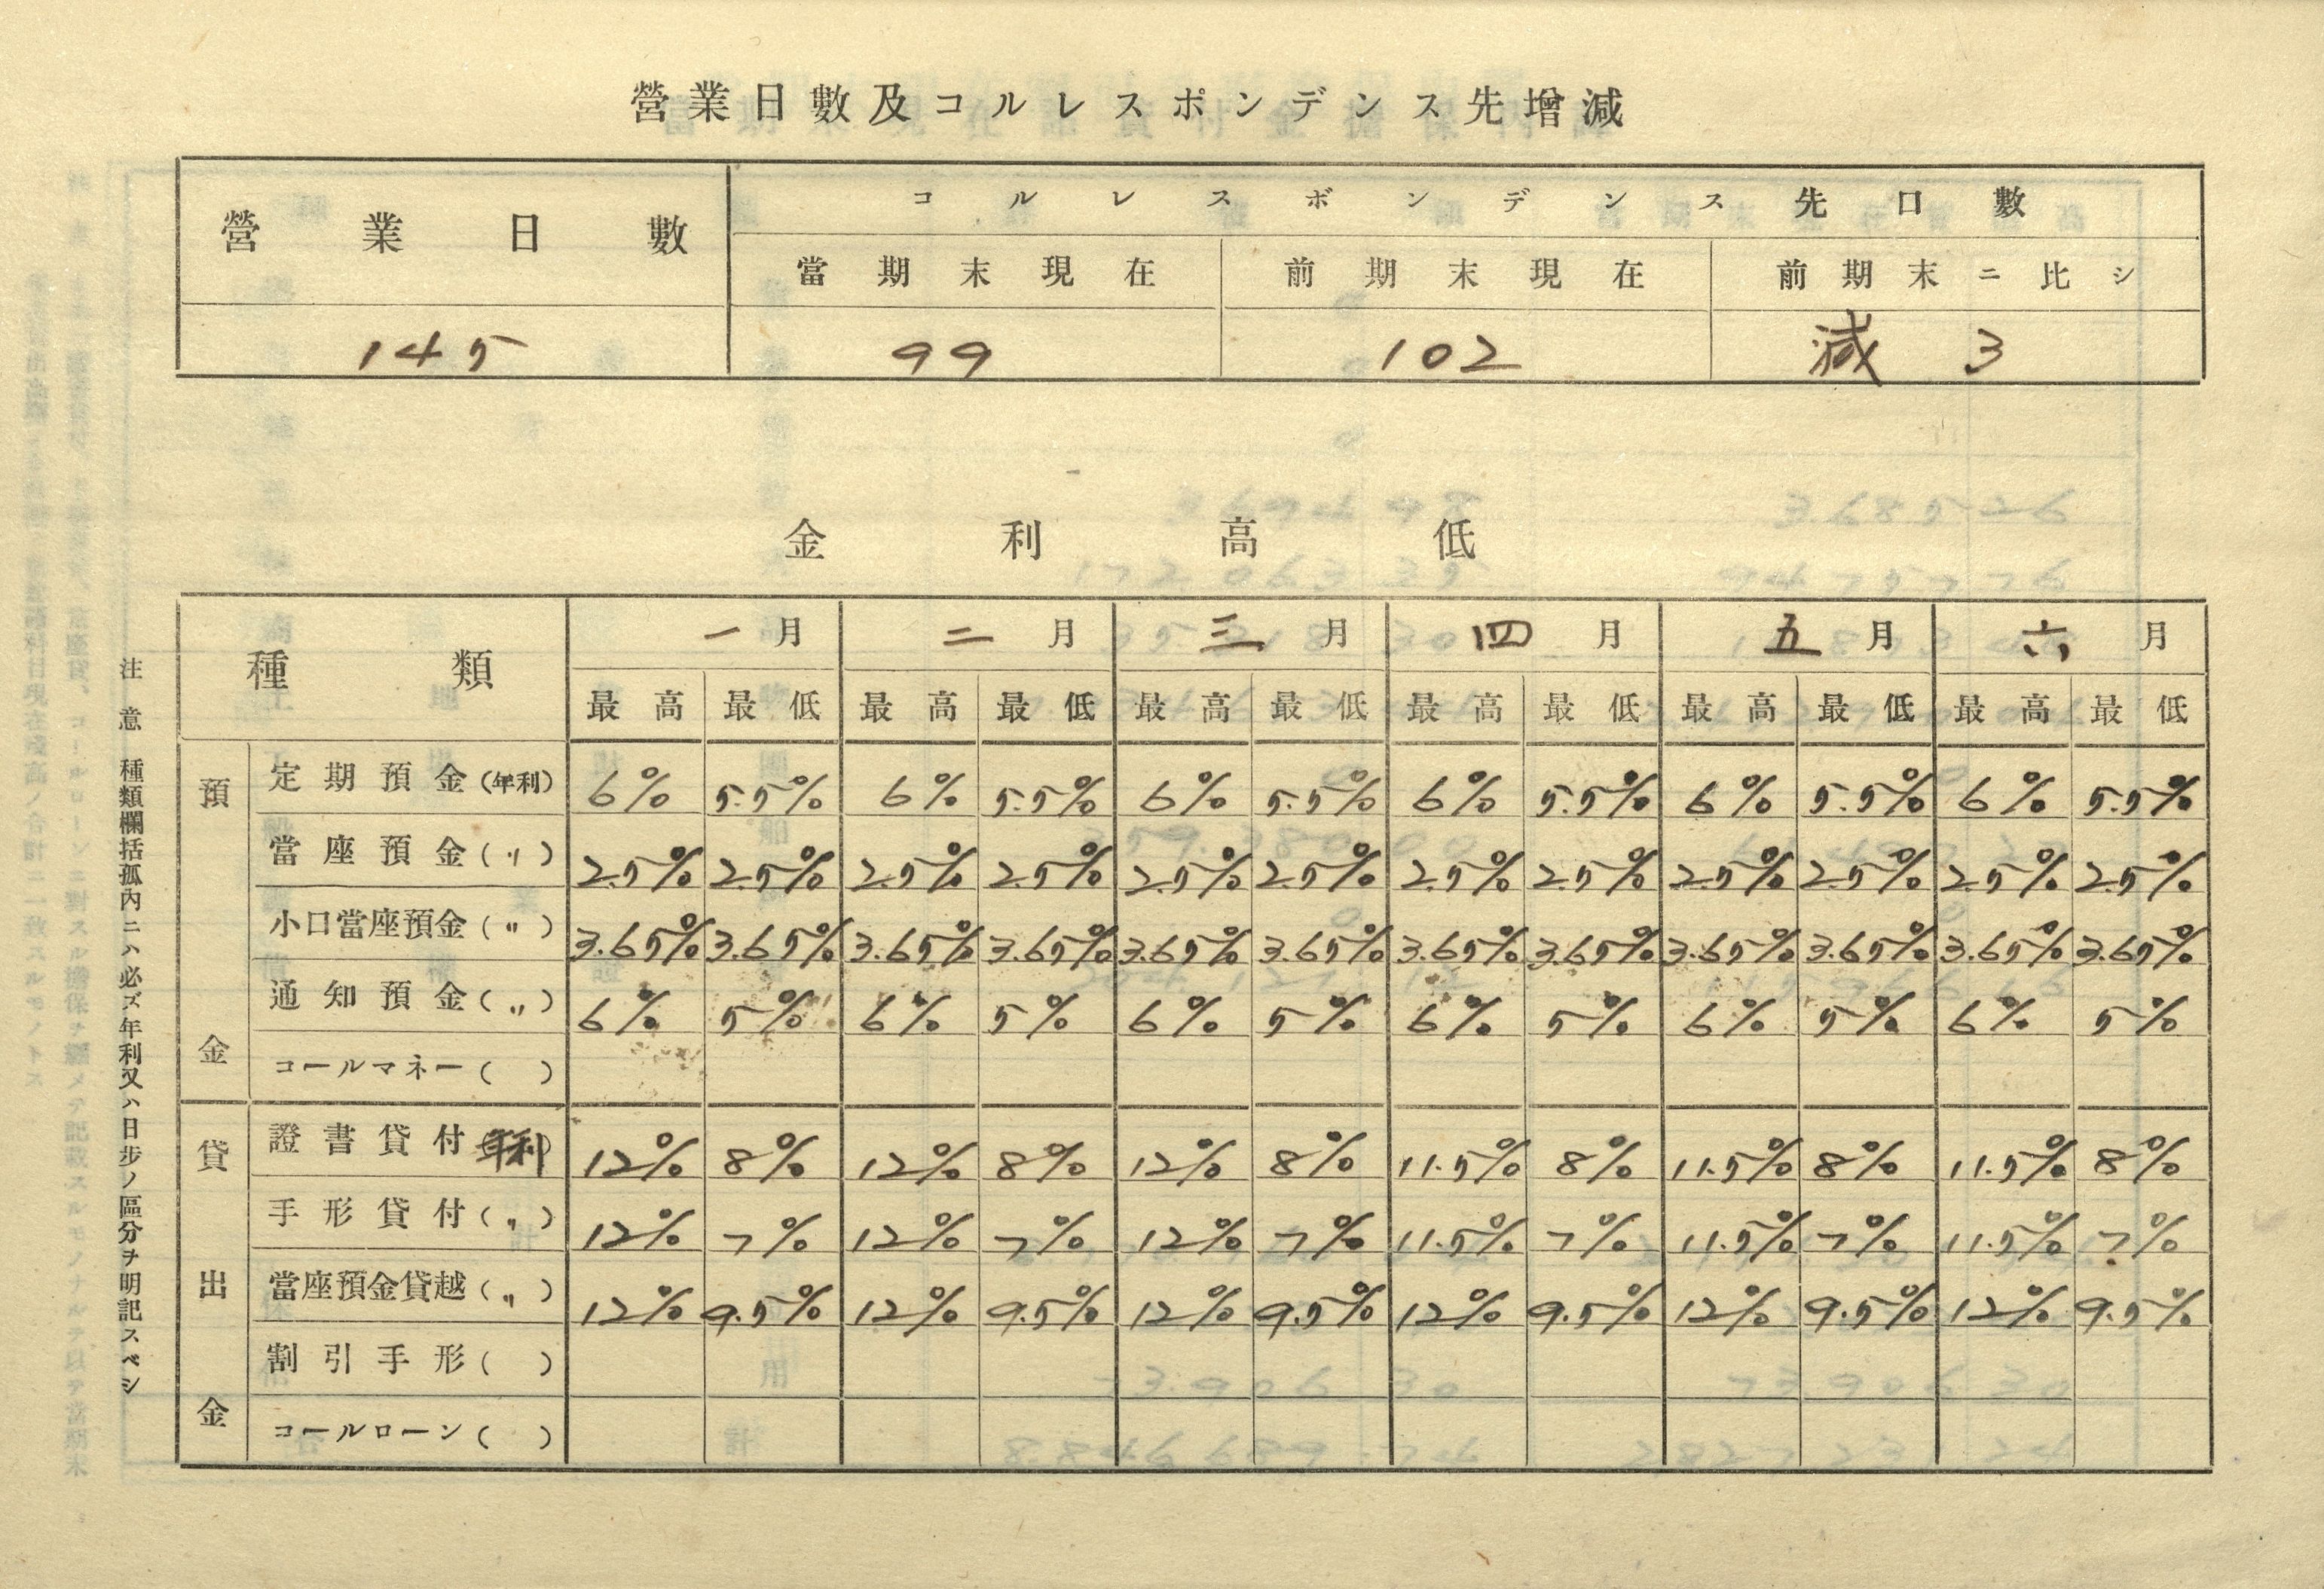 營業日數及コルレスポンデンス先增減
營業日數 コルレスポンデンス先口數
當期末現在 前期末現在 前期末ニ比シ
145 99 102 減 3
金利高低
種類 一月 二月 三月 四月 五月 六月
最高 最低 最高 最低 最高 最低 最高 最低 最高 最低 最高 最低
預金
定期預金(年利) 6% 5.5% 6% 5.5% 6% 5.5% 6% 5.5% 6% 5.5% 6% 5.5%
當座預金(〃) 2.5% 2.5% 2.5% 2.5% 2.5% 2.5% 2.5% 2.5% 2.5% 2.5% 2.5% 2.5%
小口當座預金(〃) 3.65% 3.65% 3.65% 3.65% 3.65% 3.65% 3.65% 3.65% 3.65% 3.65% 3.65% 3.65%
通知預金(〃) 6% 5% 6% 5% 6% 5% 6% 5% 6% 5% 6% 5%
コールマネー( )
貸出金
證書貸付(年利) 12% 8% 12% 8% 12% 8% 11.5% 8% 11.5% 8% 11.5% 8%
手形貸付(〃) 12% 7% 12% 7% 12% 7% 11.5% 7% 11.5% 7% 11.5% 7%
當座預金貸越(〃) 12% 9.5% 12% 9.5% 12% 9.5% 12% 9.5% 12% 9.5% 12% 9.5%
割引手形( )
コールローン( )
注意 種類欄括孤內ニハ必ズ年利又ハ日步ノ區分ヲ明記スベシ